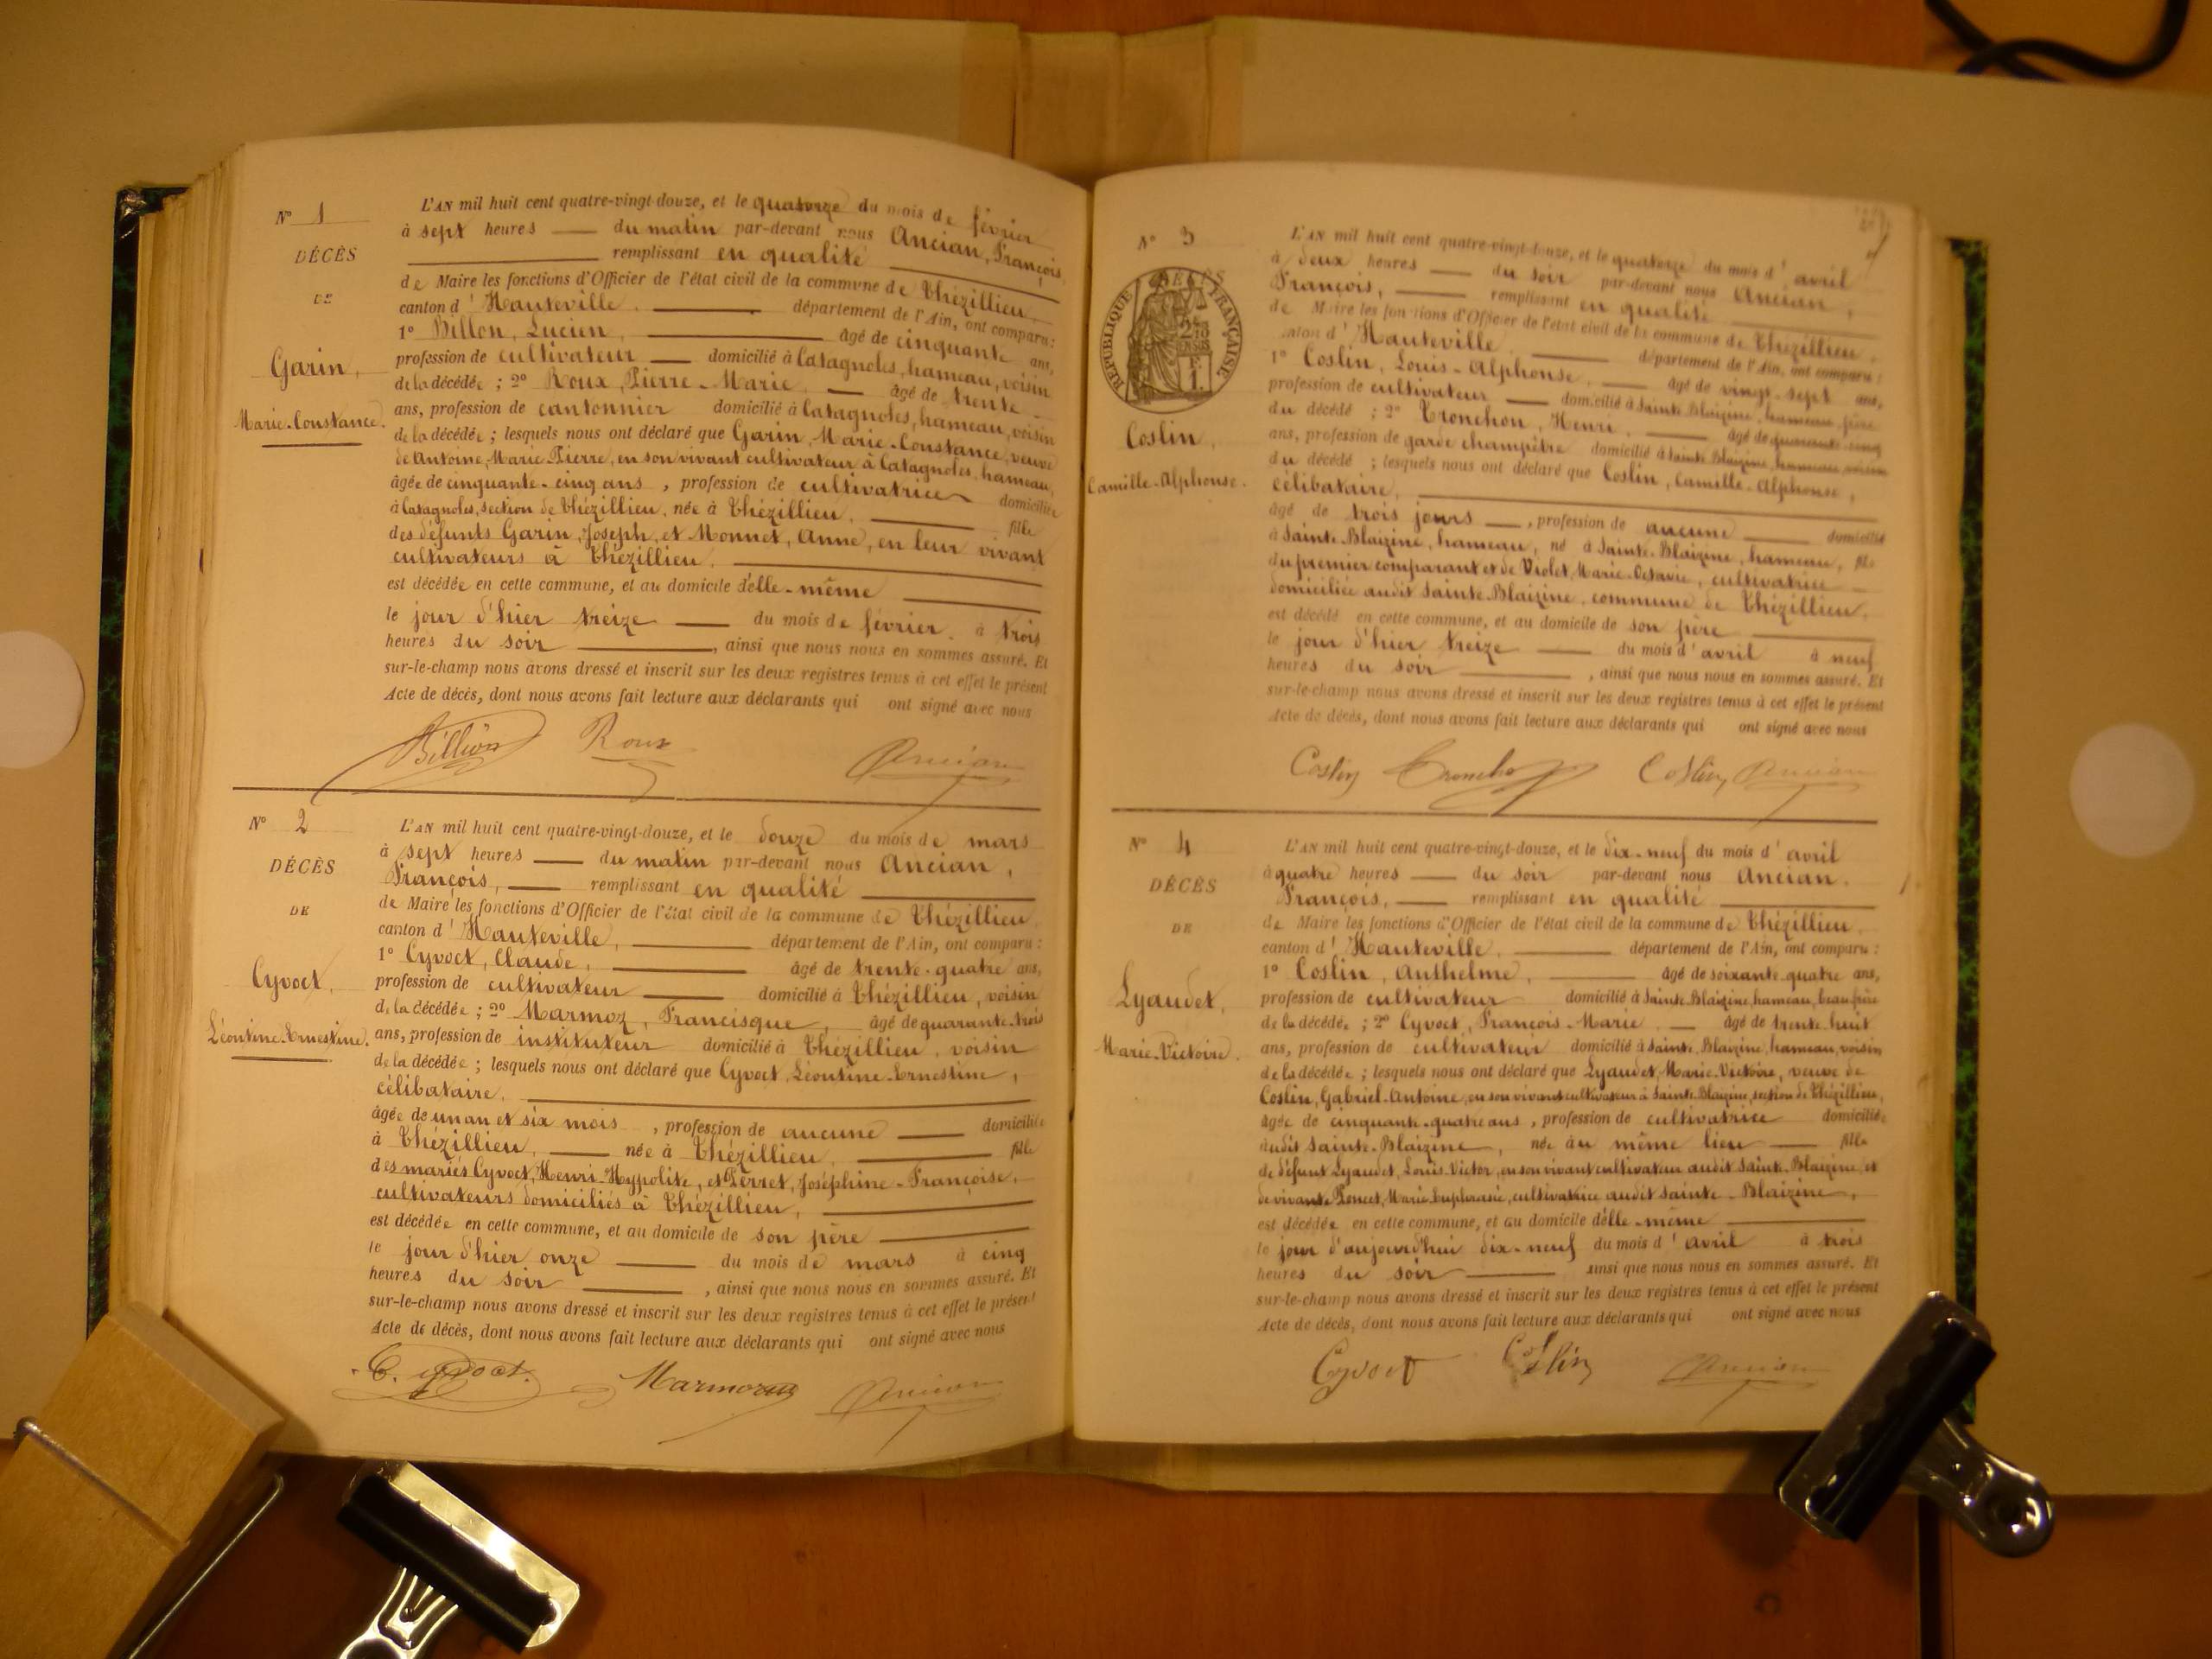 N° 1
DÉCÈS
DE
Garin,
Marie-Constance.
L'AN mil huit cent quatre-vingt-douze, et le quatorze du mois de février
à sept heures du matin par-devant nous Ancian, François,
remplissant en qualité
de Maire les fonctions d'Officier de l'état civil de la commune de Thézillieu,
canton d'Hauteville, département de l'Ain, ont comparu:
1° Billon, Lucien, âgé de cinquante ans,
profession de cultivateur domicilié à Catagnoles, hameau, voisin
de la décédée ; 2° Roux, Pierre-Marie, âgé de trente
ans, profession de cantonnier domicilié à Catagnoles, hameau, voisin
de la décédée ; lesquels nous ont déclaré que Garin, Marie-Constance, veuve
de Antoine, Marie Pierre, en son vivant cultivateur à Catagnoles, hameau,
âgée de cinquante-cinq ans, profession de cultivatrice domiciliée
à Catagnoles, section de Thézillieu, née à Thézillieu, fille
des défunts Garin, Joseph, et Monnet, Anne, en leur vivant
cultivateurs à Thézillieu,
est décédée en cette commune, et au domicile d'elle-même
le jour d'hier treize du mois de février, à trois
heures du soir, ainsi que nous nous en sommes assuré. Et
sur-le-champ nous avons dressé et inscrit sur les deux registres tenus à cet effet le présent
Acte de décès, dont nous avons fait lecture aux déclarants qui ont signé avec nous
Billion Roux Ancian
N° 2
DÉCÈS
DE
Cyvoct,
Léontine-Ernestine.
L'AN mil huit cent quatre-vingt-douze, et le douze du mois de mars
à sept heures du matin par-devant nous Ancian,
François, remplissant en qualité
de Maire les fonctions d'Officier de l'état civil de la commune de Thézillieu,
canton d'Hauteville, département de l'Ain, ont comparu :
1° Cyvoct, Claude, âgé de trente-quatre ans,
profession de cultivateur domicilié à Thézillieu, voisin
de la décédée ; 2° Marmoz, Francisque, âgé de quarante-trois
ans, profession de instituteur domicilié à Thézillieu, voisin
de la décédée ; lesquels nous ont déclaré que Cyvoct, Léontine-Ernestine,
célibataire,
âgée de un an et six mois, profession de aucune domiciliée
à Thézillieu, née à Thézillieu, fille
des mariés Cyvoct, Henri-Hypolite, et Perret, Joséphine-Françoise,
cultivateurs domiciliés à Thézillieu,
est décédée en cette commune, et au domicile de son père
le jour d'hier onze du mois de mars à cinq
heures du soir, ainsi que nous nous en sommes assuré. Et
sur-le-champ nous avons dressé et inscrit sur les deux registres tenus à cet effet le présent
Acte de décès, dont nous avons fait lecture aux déclarants qui ont signé avec nous
C. Cyvoct. Marmoz Ancian
N° 3
RÉPUBLIQUE FRANÇAISE
Coslin,
Camille-Alphonse.
L'AN mil huit cent quatre-vingt-douze, et le quatorze du mois d'avril
à deux heures du soir par-devant nous Ancian,
François, remplissant en qualité
de Maire les fonctions d'Officier de l'état civil de la commune de Thézillieu,
canton d'Hauteville, département de l'Ain, ont comparu :
1° Coslin, Louis-Alphonse, âgé de vingt-sept ans,
profession de cultivateur domicilié à Sainte Blaizine, hameau, père
du décédé ; 2° Tronchon, Henri, âgé de quarante-cinq
ans, profession de garde champêtre domicilié à Sainte Blaizine, hameau, voisin
du décédé ; lesquels nous ont déclaré que Coslin, Camille-Alphonse,
célibataire,
âgé de trois jours, profession de aucune domicilié
à Sainte-Blaizine, hameau, né à Sainte-Blaizine, hameau, fils
du premier comparant et de Violet, Marie-Octavie, cultivatrice
domiciliée audit Sainte-Blaizine, commune de Thézillieu,
est décédé en cette commune, et au domicile de son père
le jour d'hier treize du mois d'avril à neuf
heures du soir, ainsi que nous nous en sommes assuré. Et
sur-le-champ nous avons dressé et inscrit sur les deux registres tenus à cet effet le présent
Acte de décès, dont nous avons fait lecture aux déclarants qui ont signé avec nous
Coslin Tronchon Coslin Ancian
N° 4
DÉCÈS
DE
Lyaudet,
Marie-Victoire.
L'AN mil huit cent quatre-vingt-douze, et le dix-neuf du mois d'avril
à quatre heures du soir par-devant nous Ancian,
François, remplissant en qualité
de Maire les fonctions d'Officier de l'état civil de la commune de Thézillieu,
canton d'Hauteville, département de l'Ain, ont comparu :
1° Coslin, Anthelme, âgé de soixante-quatre ans,
profession de cultivateur domicilié à Sainte-Blaizine, hameau, beau-frère
de la décédée ; 2° Cyvoct, François-Marie, âgé de trente-huit
ans, profession de cultivateur domicilié à Sainte-Blaizine, hameau, voisin
de la décédée ; lesquels nous ont déclaré que Lyaudet, Marie-Victoire, veuve de
Coslin, Gabriel-Antoine, en son vivant cultivateur à Sainte-Blaizine, section de Thézillieu,
âgée de cinquante-quatre ans, profession de cultivatrice domiciliée
audit Sainte-Blaizine, née au même lieu fille
de défunt Lyaudet, Louis-Victor, en son vivant cultivateur audit Sainte-Blaizine, et
de vivante Poncet, Marie-Euphrasie, cultivatrice audit Sainte-Blaizine,
est décédée en cette commune, et au domicile d'elle-même
le jour d'aujourd'hui dix-neuf du mois d'avril à trois
heures du soir ainsi que nous nous en sommes assuré. Et
sur-le-champ nous avons dressé et inscrit sur les deux registres tenus à cet effet le présent
Acte de décès, dont nous avons fait lecture aux déclarants qui ont signé avec nous
Cyvoct Coslin Ancian